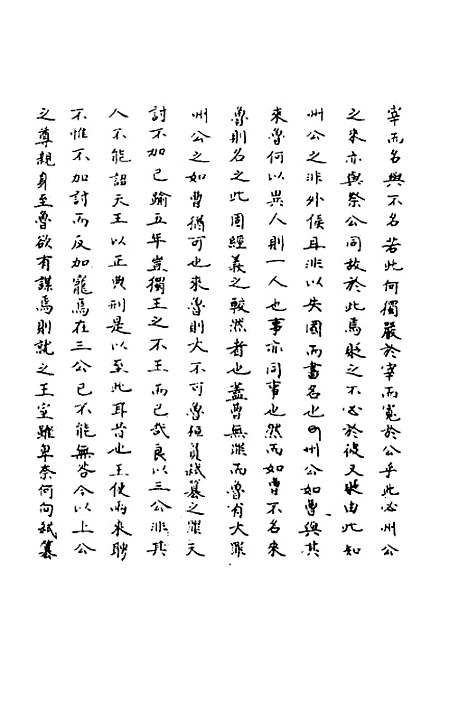 宰而名與不名若此何獨嚴於宰而寬於公乎此必州公
之來亦與祭公同故於此焉貶之不必於彼又貶由此知
州公之非外侯且非以失國而書名也州公如曹與其
來魯何以異人則一人也事亦同事也然而如曹不名來
魯則名之此固經義之較然者也蓋曹無罪而魯有大罪
州公之如曹猶可也來魯則大不可魯桓負弒篡之罪天
討不加已踰五年豈獨王之不王而已哉良以三公非其
人不能詔天王以正典刑是以至此耳昔也王使兩來聘
不惟不加討而反加寵焉在三公已不能無咎今以上公
之尊親身至魯欲有謀焉則就之王室雖卑奈何向弒篡